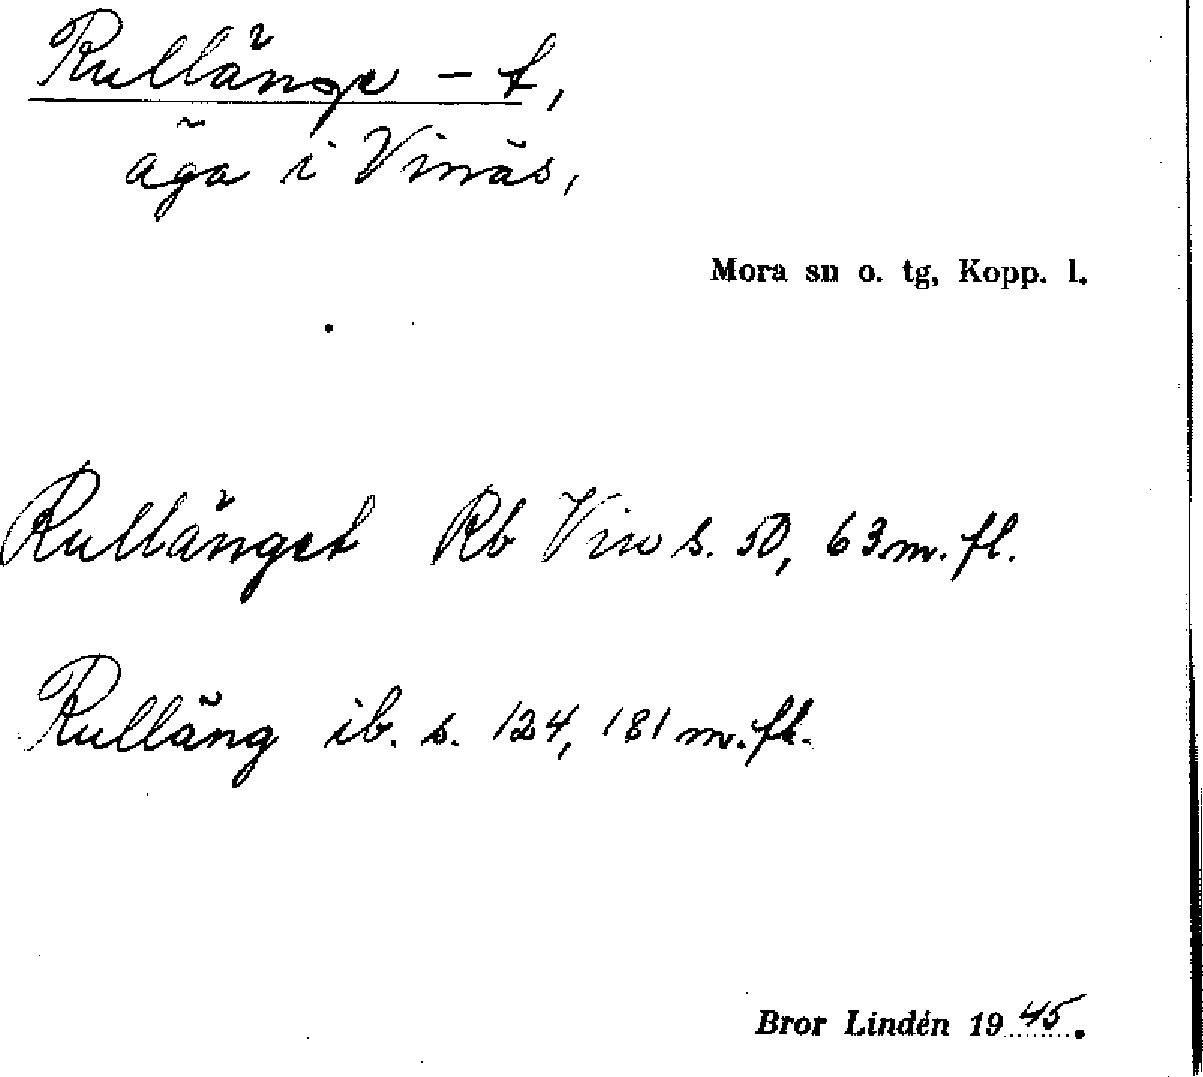 Rullänge – t,
äga i Vinäs,
Mora sn o. tg, Kopp. l.
Rullänget Rb Vin s. 50, 63 m. fl.
Rulläng ib. s. 124, 181 m. fl.
Bror Lindén 1945.